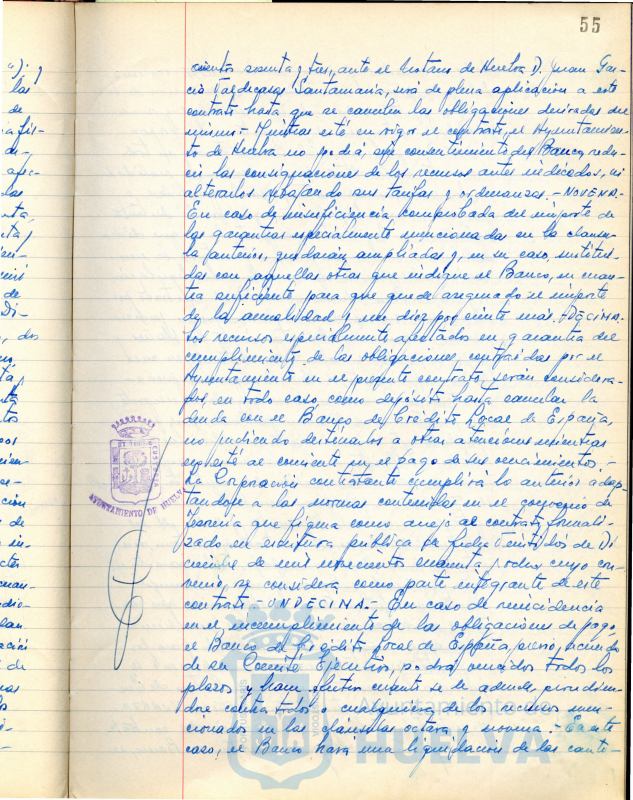 55
cientos sesenta y tres, ante el Notario de Huelva D. Juan Gar-
cía Valdecasas Santamaría, será de plena aplicación a este
contrato hasta que se cancelen las obligaciones derivadas del
mismo.- Mientras esté en vigor el contrato, el Ayuntamien-
to de Huelva no podrá, sin consentimiento del Banco, redu-
cir las consignaciones de los recursos antes indicados, ni
alterarlos rebajando sus tarifas y ordenanzas.- NOVENA.-
En caso de insuficiencia comprobada del importe de
las garantías especialmente mencionadas en la cláusu-
la anterior, quedarán ampliadas y, en su caso, sustitui-
das con aquellas otras que indique el Banco, en cuan-
tía suficiente para que quede asegurado el importe
de la anualidad y un diez por ciento más.- DECIMA.-
Los recursos especialmente afectados en garantía del
cumplimiento de las obligaciones contraídas por el
Ayuntamiento en el presente contrato, serán considera-
dos, en todo caso, como depósito hasta cancelar la
deuda con el Banco de Crédito Local de España,
no pudiendo destinarlos a otras atenciones mientras
no esté al corriente en el pago de sus vencimientos.-
La Corporación contratante cumplirá lo anterior adap-
tándose a las normas contenidas en el convenio de
Tesorería que figura como anejo al contrato formali-
zado en escritura pública de fecha veintidós de Di-
ciembre de mil novecientos cincuenta y cuyo con-
venio, se considera como parte integrante de este
contrato.- UNDECIMA.- En caso de reincidencia
en el incumplimiento de las obligaciones de pago,
el Banco de Crédito Local de España, previo acuerdo
de su Comité Ejecutivo, podrá vencidos todos los
plazos y hacer efectivo cuanto se le adeude, procedien-
do contra todos o cualquiera de los recursos men-
cionados en las cláusulas octava y novena.- En este
caso, el Banco hará una liquidación de las canti-
AYUNTAMIENTO DE HUELVA
Ayuntamiento de
HUELVA